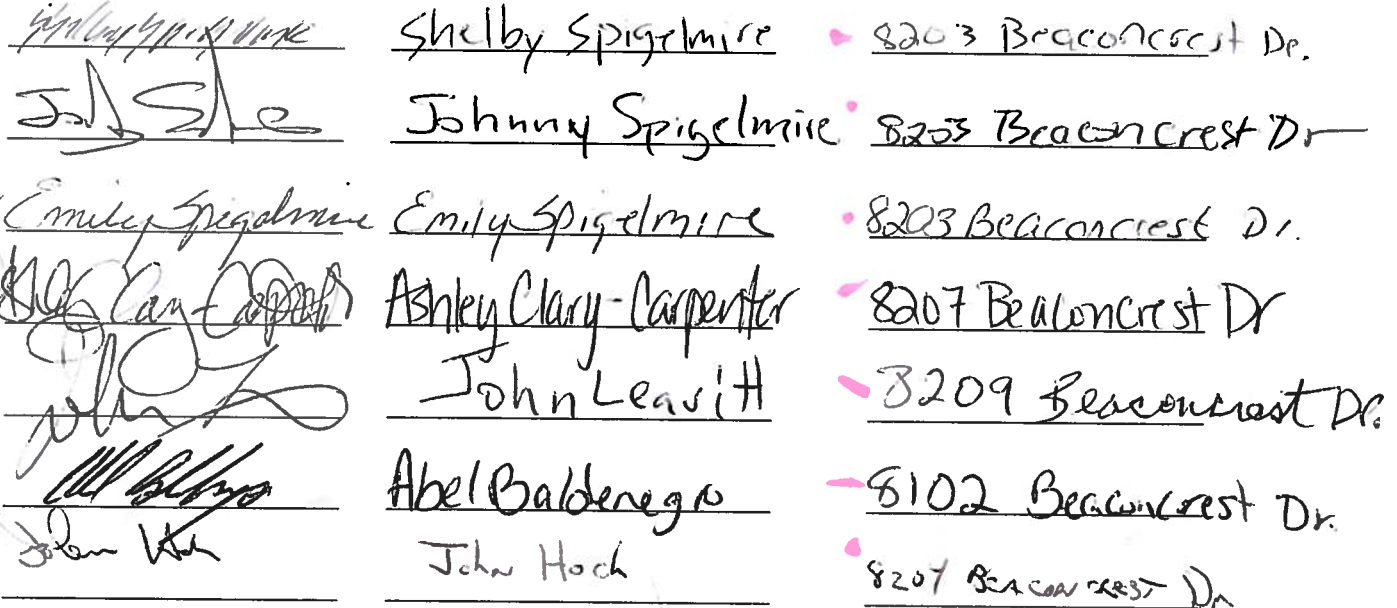 Shelby Spigelmire Shelby Spigelmire 8203 Beaconcrest Dr.
Johnny Spigelmire 8203 Beaconcrest Dr
Emily Spigelmire Emily Spigelmire 8203 Beaconcrest Dr.
Ashley Clary-Carpenter Ashley Clary-Carpenter 8207 Beaconcrest Dr
John Leavitt 8209 Beaconcrest Dr.
Abel Baldenegro 8102 Beaconcrest Dr.
John Hoch John Hoch 8207 BEACONCREST Dr